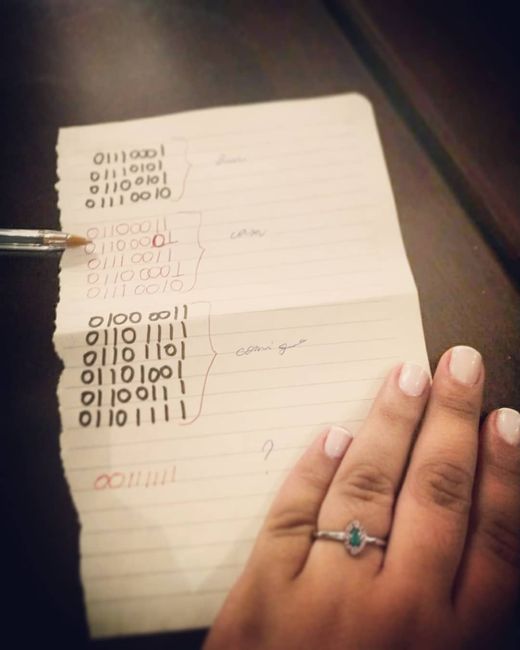 01110001
01110101
01100101
01110010
01100011
01100001
01110011
01100001
01110010
01000011
01101111
01101101
01101001
01100111
01101111
comigo
00111111 ?